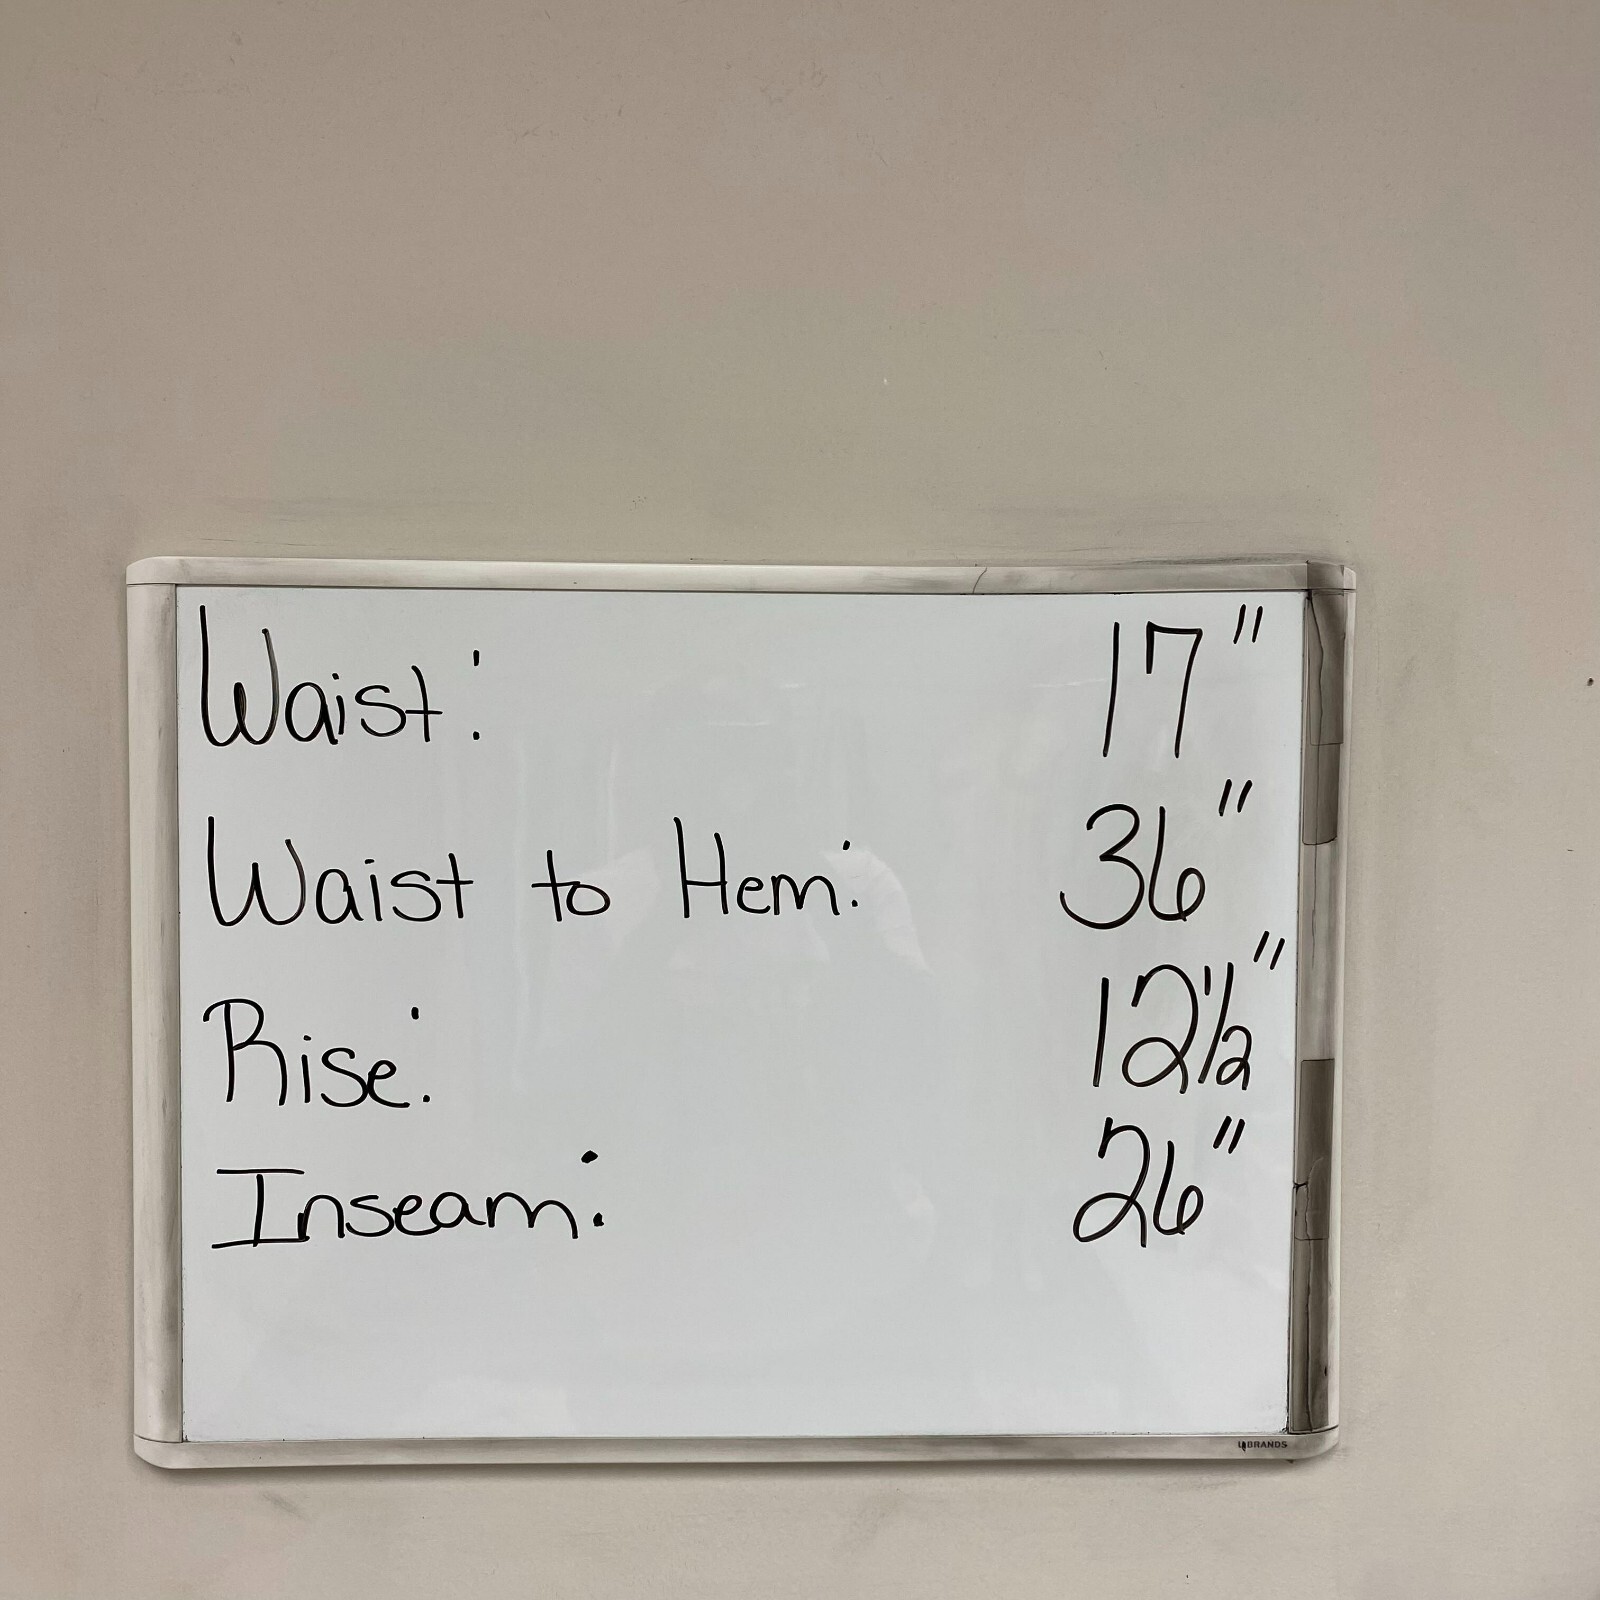 Waist: 17"
Waist to Hem: 36"
Rise: 12 1/2"
Inseam: 26"
U BRANDS